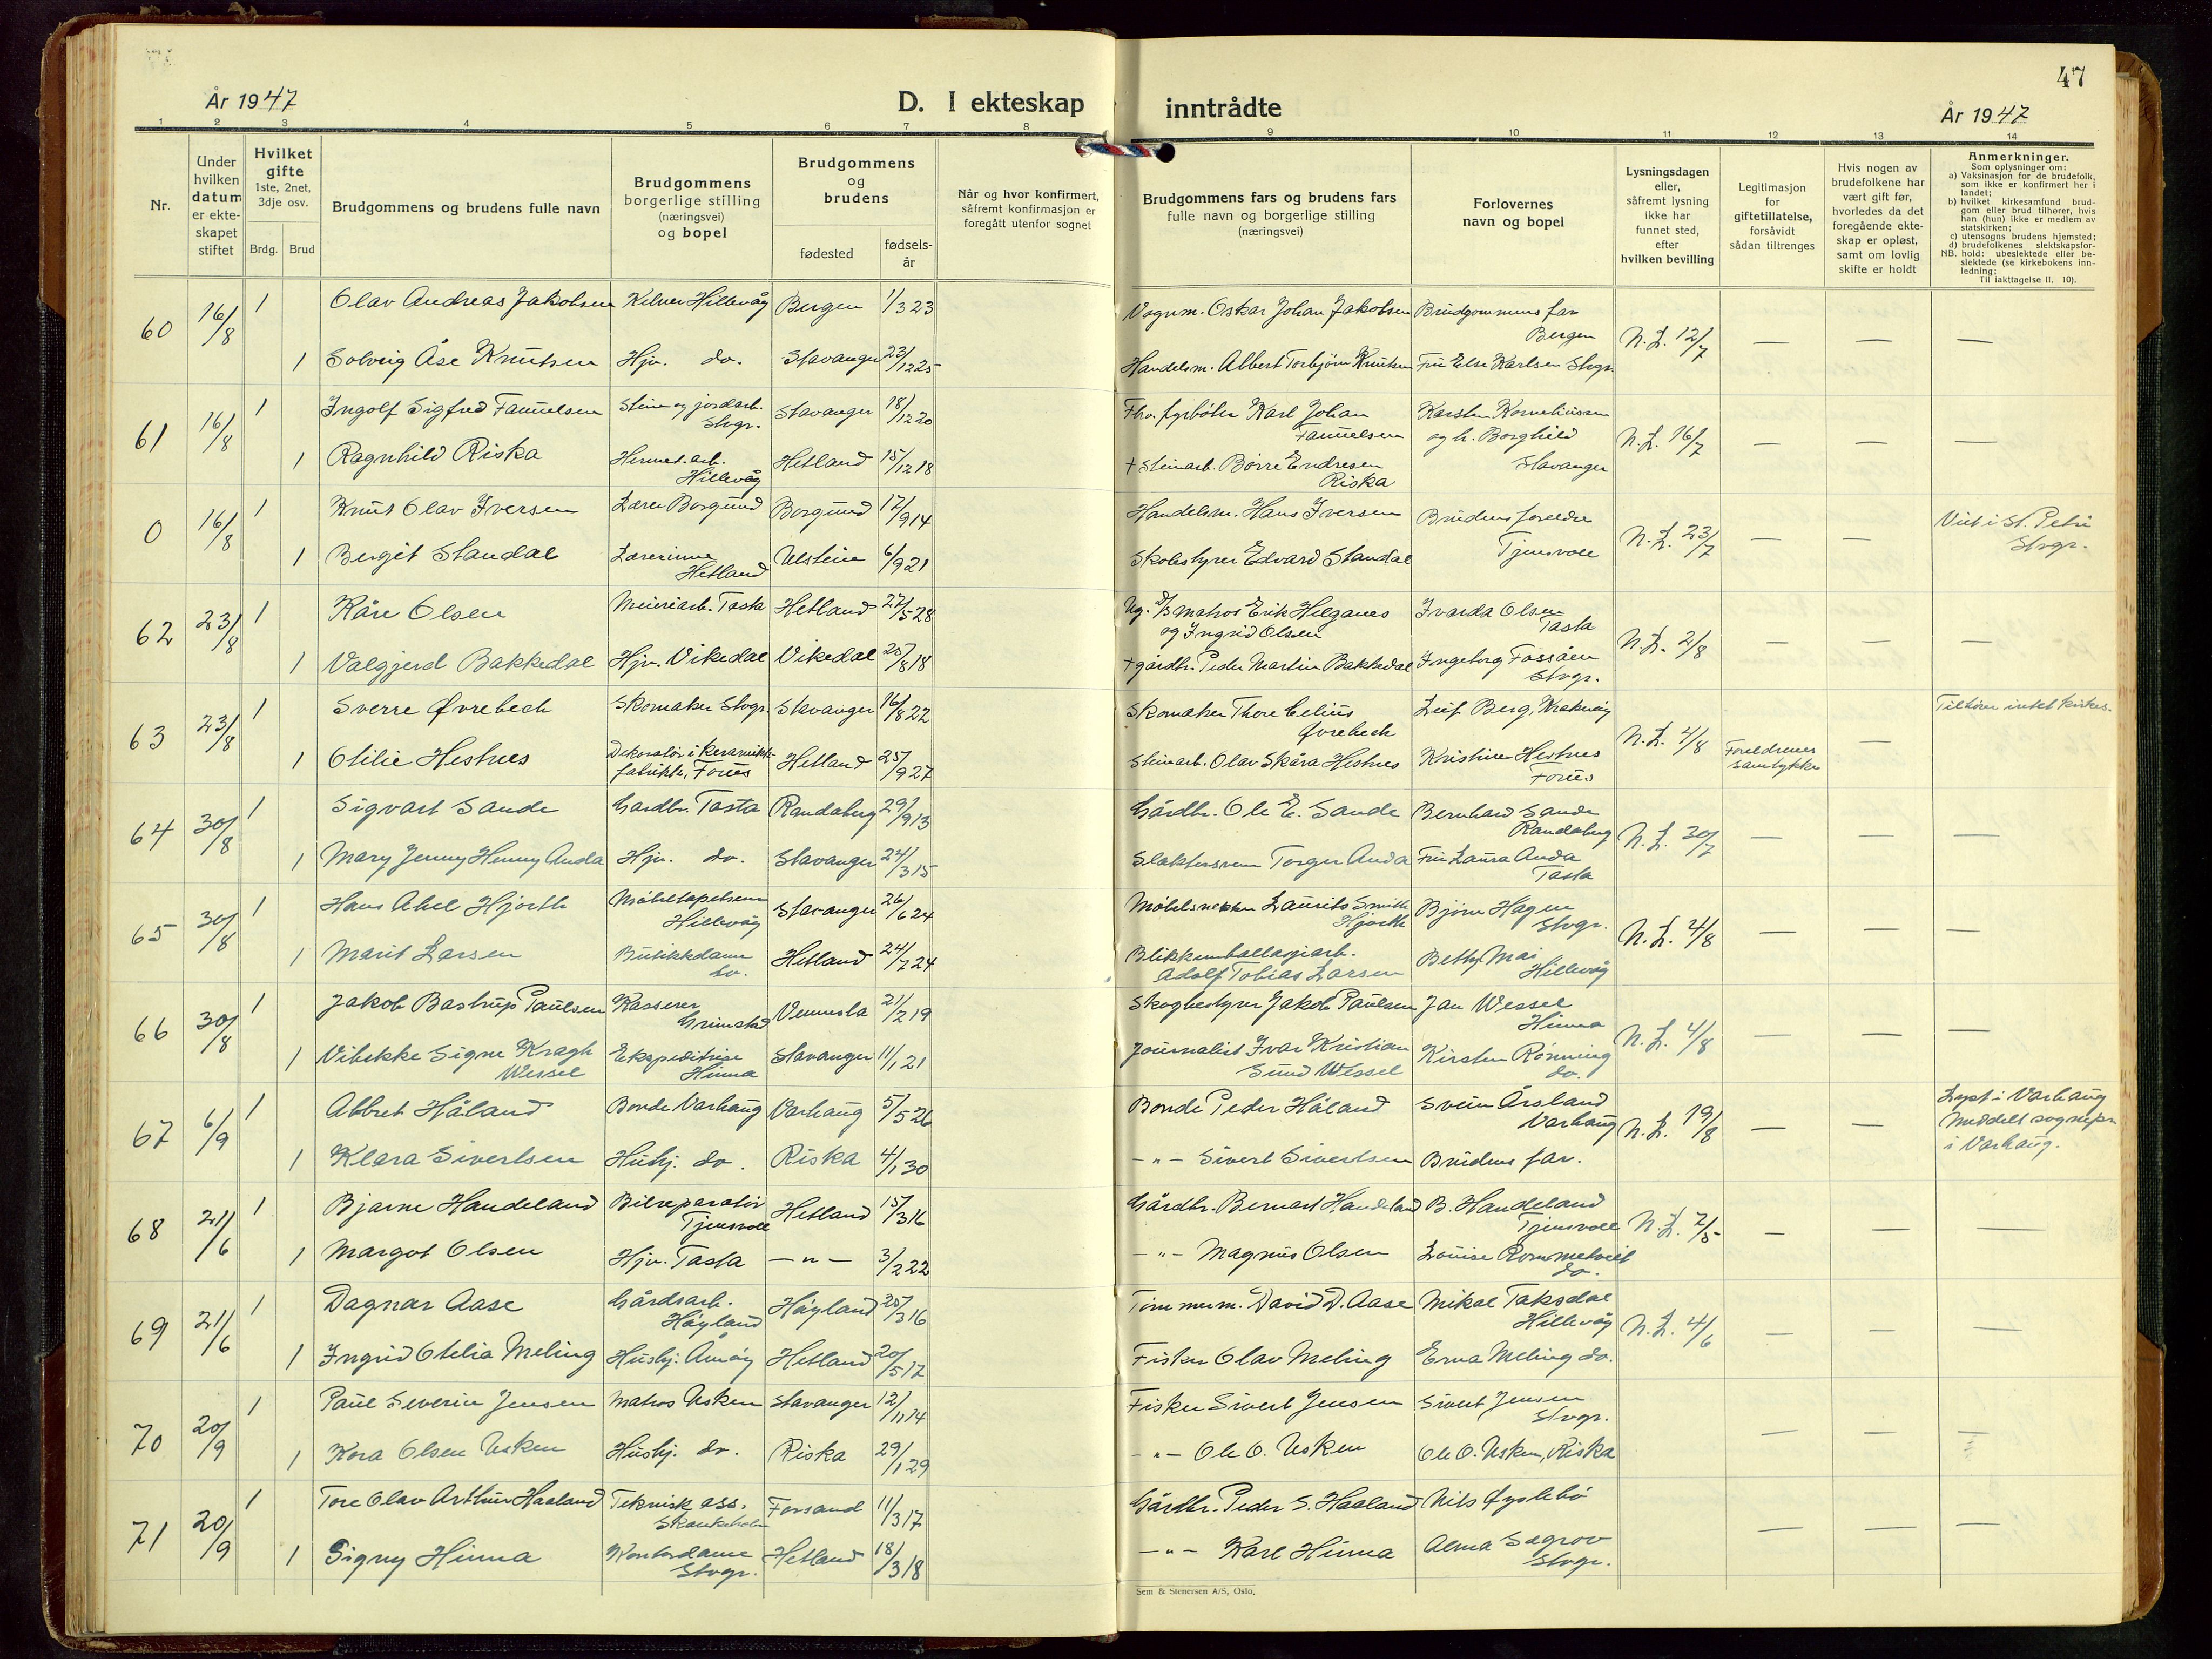 47
År 1947
D. I ekteskap inntrådte
År 1947
1 2 3 4 5 6 7 8 9 10 11 12 13 14
Nr.
Under hvilken datum er ekteskapet stiftet
Hvilket gifte 1ste, 2net, 3dje osv.
Brdg. Brud
Brudgommens og brudens fulle navn
Brudgommens borgerlige stilling (næringsvei) og bopel
Brudgommens og brudens
fødested
fødsels-år
Når og hvor konfirmert, såfremt konfirmasjon er foregått utenfor sognet
Brudgommens fars og brudens fars fulle navn og borgerlige stilling (næringsvei)
Forlovernes navn og bopel
Lysningsdagen eller, såfremt lysning ikke har funnet sted, efter hvilken bevilling
Legitimasjon for giftetillatelse, forsåvidt sådan tiltrenges
Hvis nogen av brudefolkene har vært gift før, hvorledes da det foregående ekteskap er opløst, samt om lovlig skifte er holdt
Anmerkninger.
Som oplysninger om:
a) Vaksinasjon for de brudefolk, som ikke er konfirmert her i landet;
b) hvilket kirkesamfund brudgom eller brud tilhører, hvis han (hun) ikke er medlem av statskirken;
c) utensogns brudens hjemsted;
d) brudefolkenes slektskapsforhold: ubeslektede eller beslektede (se kirkebokens innledning;
NB. Til iakttagelse II. 10).
60 16/8 1 Olav Andreas Jakobsen Kelner Hillevåg Bergen 1/3 23 Vognm. Oskar Johan Jakobsen Brudgommens far Bergen N.L. 12/7 — — —
1 Solveig Åse Knutsen Hjv. do. Stavanger 23/12 25 Handelsm. Albert Torbjørn Knutsen Fru Else Karlsen Stvgr.
61 16/8 1 Ingolf Sigfred Fanuelsen Stein og jordarb. Stvgr. Stavanger 18/12 20 Fhv. fyrbøter Karl Johan Fanuelsen Karsten Korneliussen og h. Borghild Stavanger N.L. 16/7 — — —
1 Ragnhild Riska Hermet.arb. Hillevåg Hetland 15/12 18 + Steinarb. Børre Endresen Riska
0 16/8 1 Knut Olav Iversen Lærer Borgund Borgund 17/9 14 Handelsm. Hans Iversen Brudens foreldre Tjensvoll N.L. 23/7 — — Viet i St. Petri Stvgr.
1 Bergit Standal Lærerinne Hetland Ulstein 6/9 21 Skolestyrer Edvard Standal
62 23/8 1 Kåre Olsen Meieriarb. Tasta Hetland 27/5 28 Ug. f/s matros Erik Helganes og Ingrid Olsen Ivarda Olsen Tasta N.L. 2/8 — — —
1 Valgjerd Bakkedal Hjv. Vikedal Vikedal 25/8 18 + gårdbr. Peder Martin Bakkedal Ingeborg Fossåen Stvgr.
63 23/8 1 Sverre Øvrebech Skomaker Stvgr. Stavanger 16/8 22 Skomaker Thore Celius Øvrebech Leif Berg, N.L. 4/8 — Tilhører intet kirkes.
1 Otilie Hestnes Dekoratør i keramikk-fabrikk, Forus Hetland 25/9 27 Steinarb. Olav Skåra Hestnes Kristine Hestnes Forus Foreldrenes samtykke
64 30/8 1 Sigvart Sande Gardbr. Tasta Randaberg 29/9 13 Gårdbr. Ole E. Sande Bernhard Sande Randaberg N.L. 30/7 — — —
1 Mary Jenny Henny Anda Hjv. do. Stavanger 24/3 15 Slaktersvenn Torger Anda Fru Laura Anda Tasta
65 30/8 1 Hans Abel Hjorth Møbeltapetserer Hillevåg Stavanger 26/6 24 Møbelsnekker Laurits Smith Hjorth Bjørn Hagen Stvgr. N.L. 4/8 — — —
1 Marit Larsen Butikkdame do. Hetland 24/7 24 Blikkemballasjearb. Adolf Tobias Larsen Betty Mai Hillevåg
66 30/8 1 Jakob Bastrup Paulsen Kasserer Grimstad Vennesla 21/2 19 Skogbestyrer Jakob Paulsen Jan Wessel Hinna N.L. 4/8 — — —
1 Vibekke Signe Kragh Wessel Ekspeditrise Hinna Stavanger 11/1 21 Journalist Ivar Kristian Sund Wessel Kirsten Rønning do.
67 6/9 1 Albret Håland Bonde Varhaug Varhaug 5/5 26 Bonde Peder Håland Svein Årsland Varhaug N.L. 19/8 — — Lyst i Varhaug Meddelt sognepr i Varhaug.
1 Klara Sivertsen Hushj. do. Riska 4/1 30 -"- Sivert Sivertsen Brudens far.
68 21/6 1 Bjarne Handeland Bilreparatør Tjensvoll Hetland 15/3 16 Gårdbr. Bernart Handeland B. Handeland Tjensvoll N.L. 2/5 — — —
1 Margot Olsen Hjv. Tasta -"- 3/2 22 -"- Magnus Olsen Louise Rommetveit do.
69 21/6 1 Dagnar Aase Gårdsarb. Høyland Høyland 25/3 16 Tømmerm. David D. Aase Mikal Taksdal Hillevåg N.L. 4/6 — — —
1 Ingrid Otelia Meling Hushj. Åmøy Hetland 20/5 17 Fisker Olav Meling Erna Meling do.
70 20/9 1 Paul Severin Jensen Matros Usken Stavanger 12/11 14 Fisker Sivert Jensen Sivert Jensen Stvgr. — — —
1 Kora Olsen Usken Hushj. do. Riska 29/1 29 -"- Ole O. Usken Ole O. Usken, Riska
71 20/9 1 Tore Olav Arthur Haaland Teknisk ass. Forsand 11/3 17 Gårdbr. Peder S. Haaland Nils Øyslebø — — —
1 Signy Hinna Kontordame Stvgr. Hetland 18/3 18 -"- Karl Hinna Alma Sagrov Stvgr.
Sem & Stenersen A/S, Oslo.